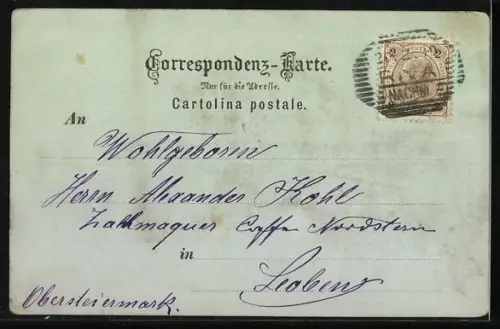 Correspondenz-Karte.
Nur für die Adresse.
Cartolina postale.
2 2
NACHM
An
Wohlgeboren
Herrn Alexander Kohl
Zahlmarquer Caffe Nordstern
in
Leoben
Obersteiermark.